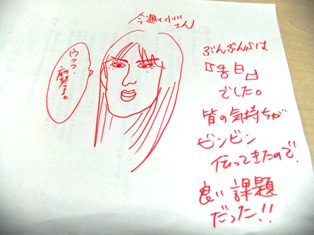 今週の小川さん
ウフフ
ぶんぶんぶは
「告白」
でした。
皆の気持ちが
ビンビン
伝ってきたので、
良い課題
だった!!